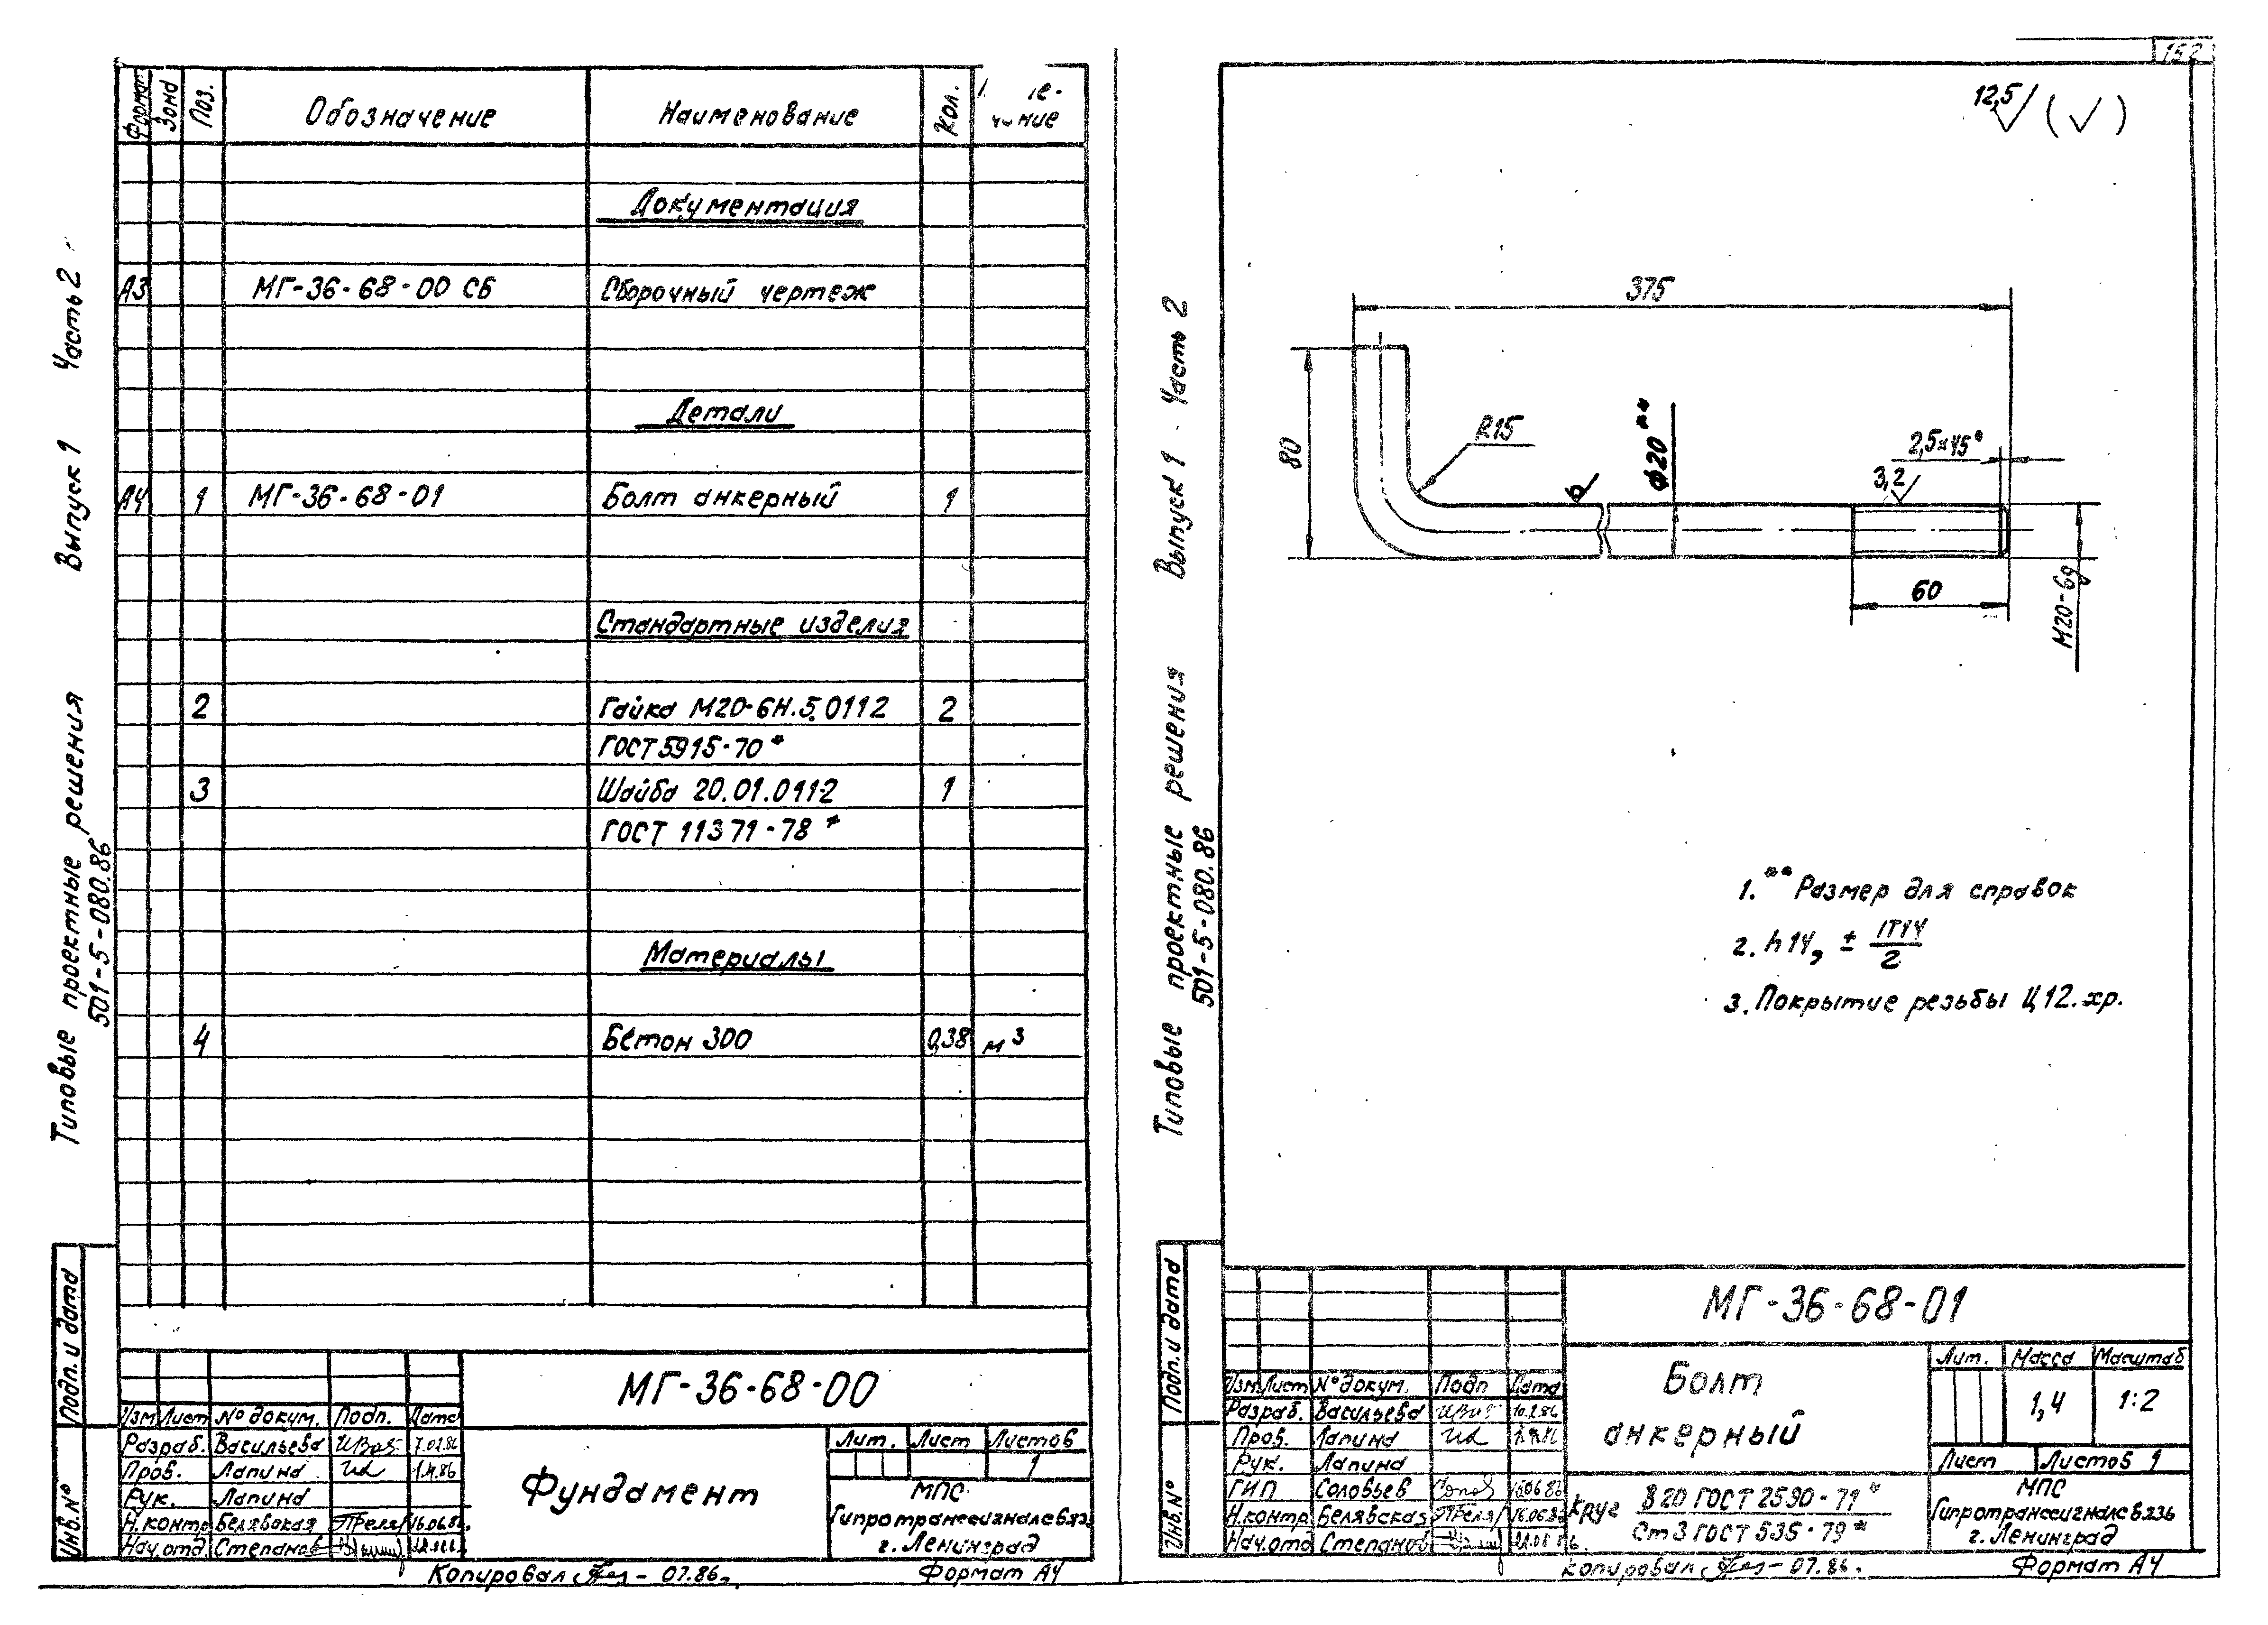 Формат Зона Поз. Обозначение Наименование Кол.
Документация
А3 МГ-36-68-00 СБ Сборочный чертеж
Детали
А4 1 МГ-36-68-01 Болт анкерный 1
Стандартные изделия
2 Гайка М20-6Н.5.0112 2
ГОСТ 5915-70*
3 Шайба 20.01.0112 1
ГОСТ 11371-78*
Материалы
4 Бетон 300 0,38 м³
Типовые проектные решения Выпуск 1 Часть 2
501-5-080.86
Подп. и дата
Инв.№
МГ-36-68-00
Изм Лист № докум. Подп. Дата
Разраб. Васильева 7.02.86
Пров. Лапина
Рук. Лапина
Н.контр Белявская 16.06.86
Нач.отд. Степанов
Фундамент
Лит. Лист Листов
1
МПС
Гипротранссигналсвязь
г. Ленинград
Копировал 07.86г. Формат А4
152
12,5 (✓)
375
80
R15
ф20**
2,5х45°
3,2
60
М20-6g
1. **Размер для справок
2. h14, ± IT14/2
3. Покрытие резьбы Ц12.хр.
Типовые проектные решения Выпуск 1 Часть 2
501-5-080.86
Подп. и дата
Инв.№
МГ-36-68-01
Изм Лист № докум. Подп Дата
Разраб. Васильева 10.2.86
Пров. Лапина
Рук. Лапина
ГИП Соловьев 16.06.86
Н.контр Белявская 16.06.86
Нач.отд Степанов
Болт
анкерный
Лит. Масса Масштаб
1,4 1:2
Лист Листов 1
Круг В20 ГОСТ 2590-71*
Ст3 ГОСТ 535-79*
МПС
Гипротранссигналсвязь
г. Ленинград
Копировал 07.86. Формат А4